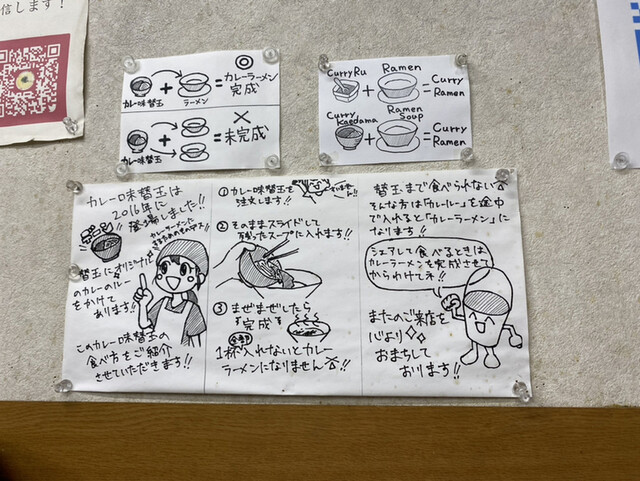 信します!
カレー味替玉
ラーメン
=
カレーラーメン
完成
カレー味替玉
=
未完成
Curry Ru
+
Ramen
=
Curry
Ramen
Curry
Kaedama
+
Ramen
Soup
=
Curry
Ramen
カレー味替玉は
2016年に
登場しました!!
カレーラーメンに
するためのものデス
替玉にオリジナル
のカレーのルー
をかけて
あります!!
このカレー味替玉の
食べ方をご紹介
させていただきます!!
①カレー味替玉を
注文します!!
すいませーん!
②そのままスライドして
残ったスープに入れます!!
③まぜまぜしたら
完成
全部
1杯入れないとカレー
ラーメンになりません!!
替玉まで食べられない
そんな方は「カレールー」を途中
で入れると「カレーラーメン」に
なります!!
シェアして食べるときは
カレーラーメンを完成させて
からわけてネ!!
またのご来店を
心より
おまちして
おります!!